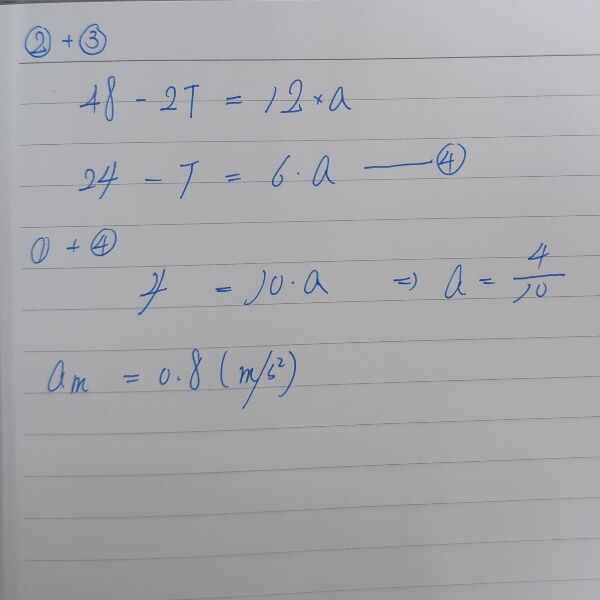 ② + ③
48 - 2T = 12 × a
24 - T = 6 · a —— ④
① + ④
4 = 10 · a ⇒ a = 4/10
aₘ = 0.8 (m/s²)